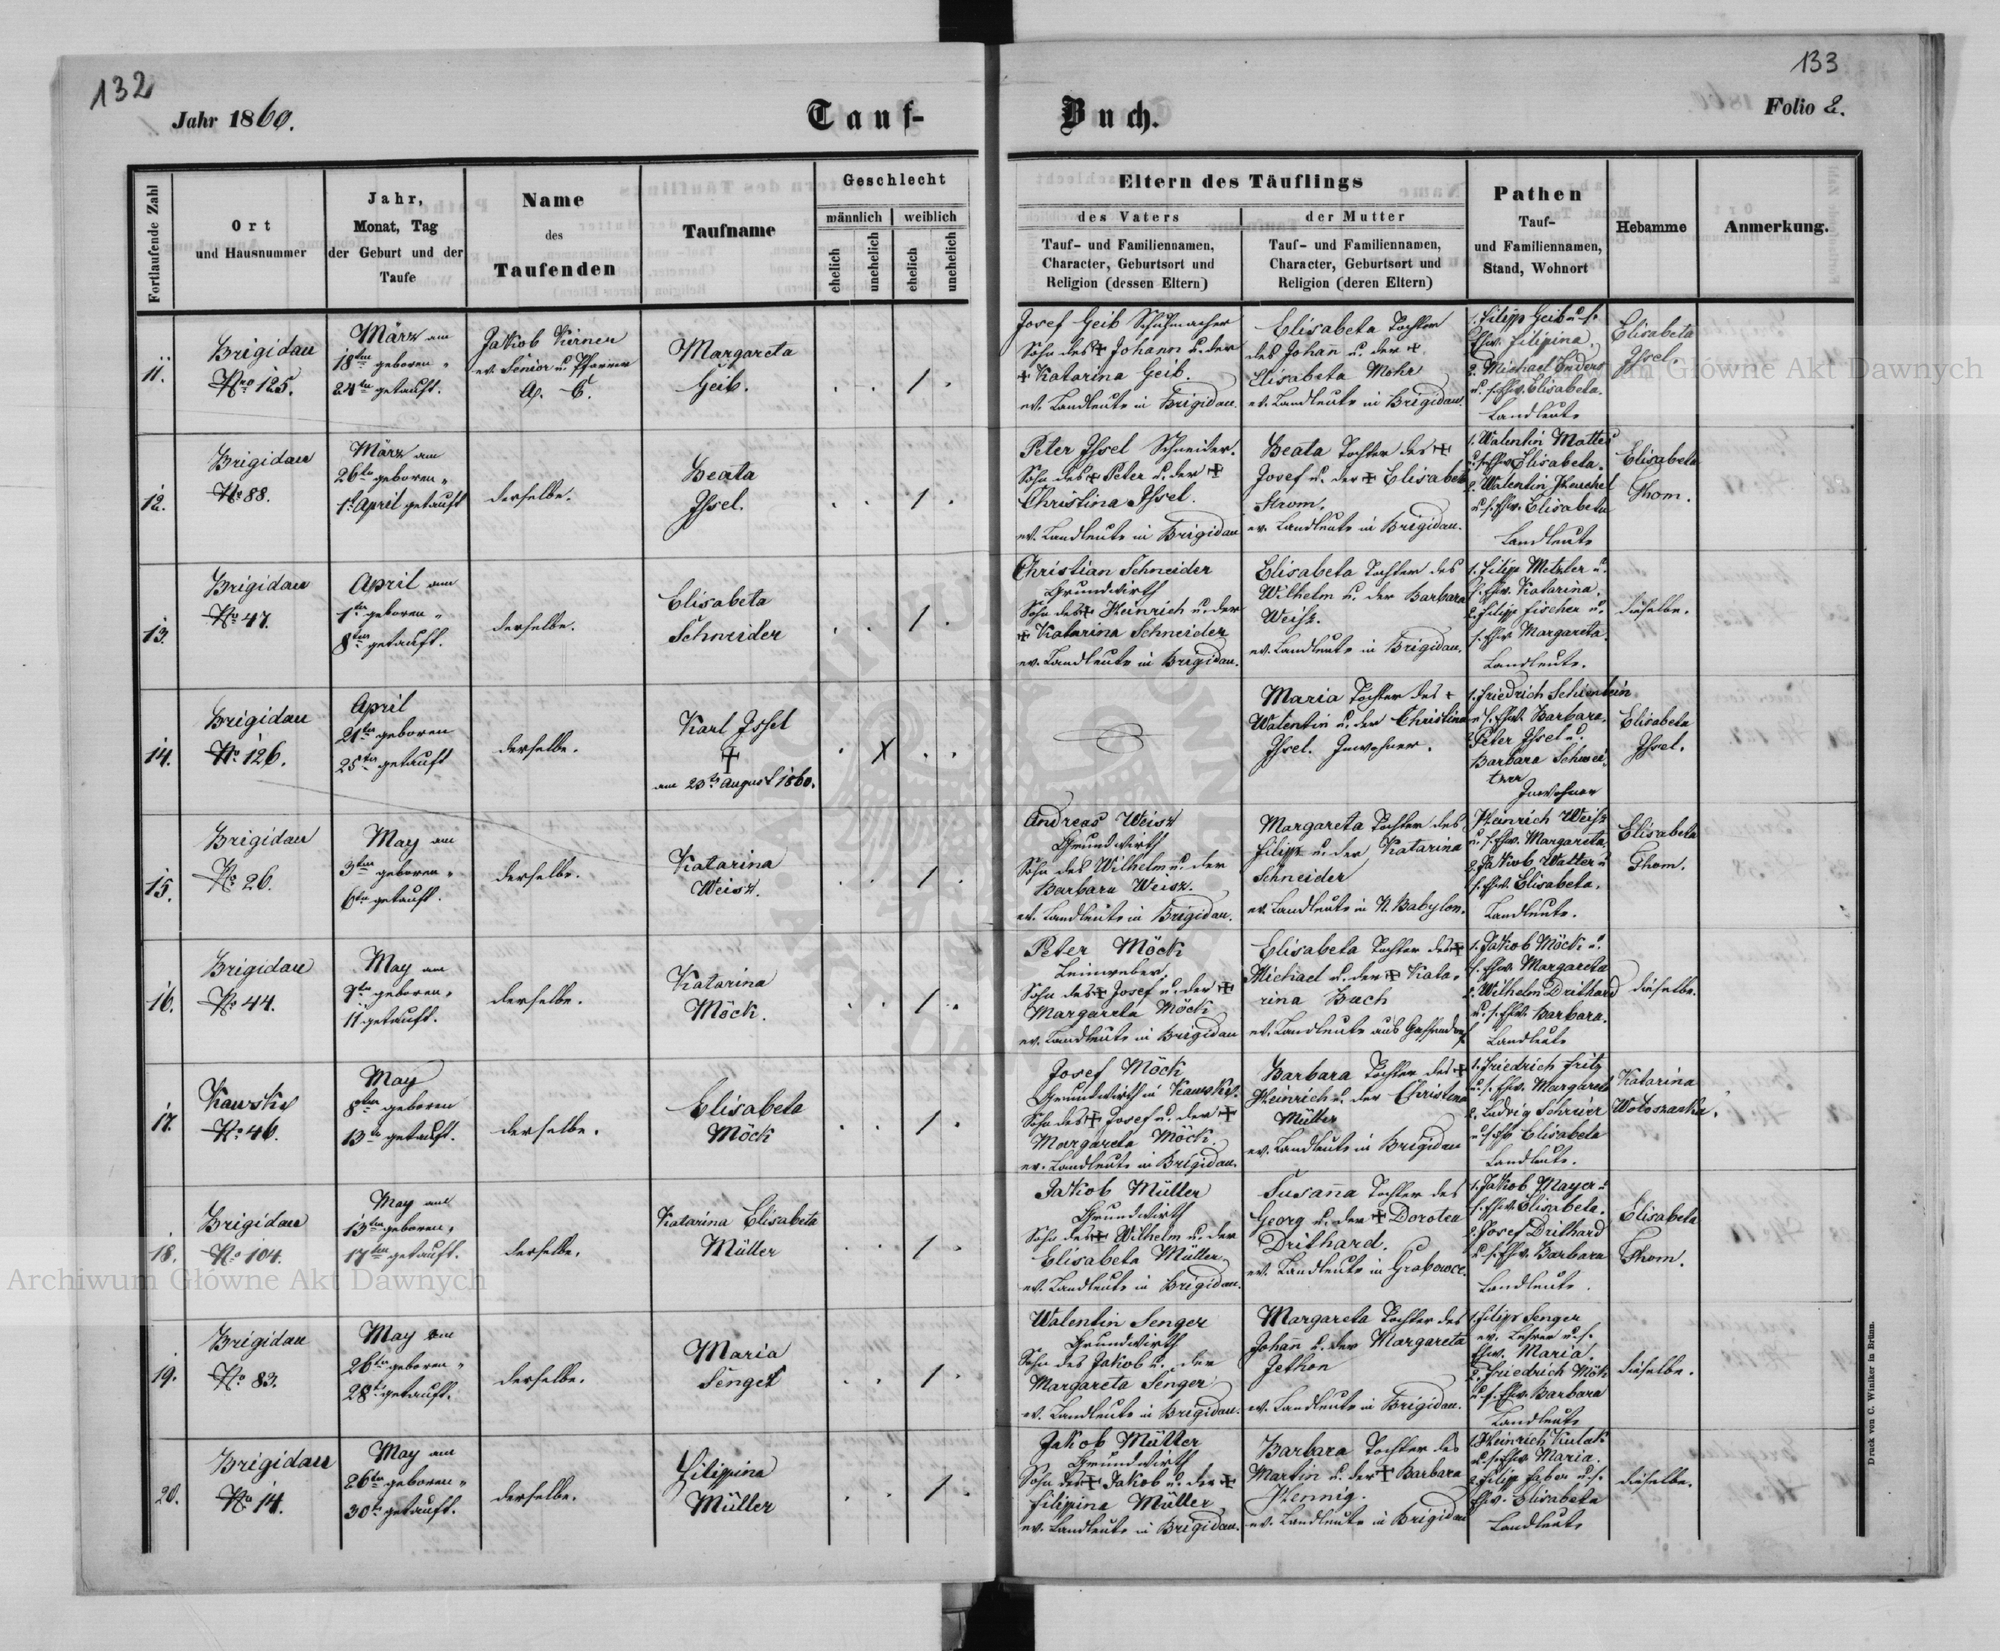 132
133
Jahr 1860.
Tauf-
Buch.
Folio 2.
Fortlaufende Zahl
Ort
und Hausnummer
Jahr,
Monat, Tag
der Geburt und der
Taufe
Name
des
Taufenden
Taufname
Geschlecht
männlich
weiblich
ehelich
unehelich
ehelich
unehelich
Eltern des Täuflings
des Vaters
Tauf- und Familiennamen,
Character, Geburtsort und
Religion (dessen Eltern)
der Mutter
Tauf- und Familiennamen,
Character, Geburtsort und
Religion (deren Eltern)
Pathen
Tauf-
und Familiennamen,
Stand, Wohnort
Hebamme
Anmerkung.
11.
Brigidau
Nro 125.
März am
18ten geboren "
24ten getauft.
Jakob Kirner
ev. Senior u. Pfarrer
A. C.
Margareta
Geib.
Josef Geib Schuhmacher
Sohn des + Johann u. der
+ Katarina Geib.
ev. Landleute in Brigidau.
Elisabeta Tochter
des Johann u. der +
Elisabeta Mohr
ev. Landleute in Brigidau.
1. Filipp Geib u. s.
Ehw. Filipina.
2. Michael Enders
u. s. Ehw. Elisabeta.
Landleute
Elisabeta
Issel.
12.
Brigidau
No 88.
März am
26ten geboren "
1t April getauft
derselbe.
Beata
Issel.
Peter Issel Schneider.
Sohn des + Peter u. der +
Christina Issel.
ev. Landleute in Brigidau
Beata Tochter des +
Josef u. der + Elisabeta
Strom.
ev. Landleute in Brigidau.
1. Walentin Mattes
u. s. Ehw. Elisabeta.
2. Walentin
u. s. Ehw. Elisabeta
Landleute
Elisabeta
Thom.
13.
Brigidau
No 47.
April am
1ten geboren "
8ten getauft.
derselbe.
Elisabeta
Schneider
Christian Schneider
Grundwirth
Sohn des + Heinrich u. der
+ Katarina Schneider
ev. Landleute in Brigidau.
Elisabeta Tochter des
Wilhelm u. der Barbara
Weisz.
ev. Landleute in Brigidau.
1. Filipp Metzler u.
s. Ehw. Katarina.
2. Filipp Fischer u.
s. Ehw. Margareta.
Landleute.
dieselbe.
14.
Brigidau
No 126.
April
21ten geboren
25ten getauft
derselbe.
Karl Issel
+
am 23ten August 1860.
Maria Tochter des +
Walentin u. der Christina
Issel. Inwohner.
1. Friedrich
u. s. Ehw. Barbara.
2. Peter Issel u.
Barbara Schwei-
tzer
Inwohner
Elisabeta
Issel.
15.
Brigidau
No 26.
May am
3ten geboren "
6ten getauft.
derselbe.
Katarina
Weisz.
Andreas Weisz
Grundwirth
Sohn des Wilhelm u. der
Barbara Weisz.
ev. Landleute in Brigidau.
Margareta Tochter des
Filipp u. der Katarina
Schneider
ev. Landleute in N. Babylon.
Heinrich Weisz
u. s. Ehw. Margareta.
2. Jakob Walter u.
s. Ehw. Elisabeta.
Landleute.
Elisabeta
Thom.
16.
Brigidau
No 44.
May am
7ten geboren "
11 getauft.
derselbe.
Katarina
Möck.
Peter Möck
Leinweber,
Sohn des + Josef u. der +
Margareta Möck
ev. Landleute in Brigidau
Elisabeta Tochter des +
Michael u. der + Kata-
rina Bach
ev. Landleute aus Gassendorf
1. Jakob Möck u.
s. Ehw. Margareta
2. Wilhelm Drithard
u. s. Ehw. Barbara.
Landleute
dieselbe.
17.
Kawsko
No 46.
May
8ten geboren
13ten getauft.
derselbe.
Elisabeta
Möck
Josef Möck
Grundwirth in Kawsko.
Sohn des + Josef u. der +
Margareta Möck.
ev. Landleute in Brigidau.
Barbara Tochter des +
Heinrich u. der Christina
Müller
ev. Landleute in Brigidau
1. Friedrich Fritz
u. s. Ehw. Margareta
2. Ludwig Schreier
u. s. Ehw. Elisabeta
Landleute.
Katarina
Wołoszanska.
18.
Brigidau
No 104.
May am
13ten geboren,
17ten getauft.
derselbe.
Katarina Elisabeta
Müller
Jakob Müller
Grundwirth
Sohn des + Wilhelm u. der
Elisabeta Müller
ev. Landleute in Brigidau.
Susanna Tochter des
Georg u. der + Dorotea
Drithard.
ev. Landleute in Grabowce.
1. Jakob Mayer u.
s. Ehw. Elisabeta.
2. Josef Drithard
u. s. Ehw. Barbara
Landleute.
Elisabeta
Thom.
19.
Brigidau
No 83.
May am
26ten geboren "
28t getauft.
derselbe.
Maria
Senger
Walentin Senger
Grundwirth
Sohn des Jakob u. der
Margareta Senger
ev. Landleute in Brigidau.
Margareta Tochter des
Johann u. der Margareta
Jethon
ev. Landleute in Brigidau.
1. Filipp Senger
ev. Lehrer u. s.
Ehw. Maria.
2. Friedrich Mök
u. s. Ehw. Barbara
Landleute
dieselbe.
20.
Brigidau
No 14.
May am
26ten geboren "
30ten getauft.
derselbe.
Filippina
Müller
Jakob Müller
Grundwirth
Sohn des + Jakob u. der +
Filippina Müller
ev. Landleute in Brigidau.
Barbara Tochter des
Martin u. der + Barbara
Hennig.
ev. Landleute in Brigidau
1. Heinrich Kulak
u. s. Ehw. Maria.
2. Filipp Faber u. s.
Ehw. Elisabeta
Landleute
dieselbe.
Druck von C. Winiker in Brünn.
Archiwum Główne Akt Dawnych
Archiwum Główne Akt Dawnych